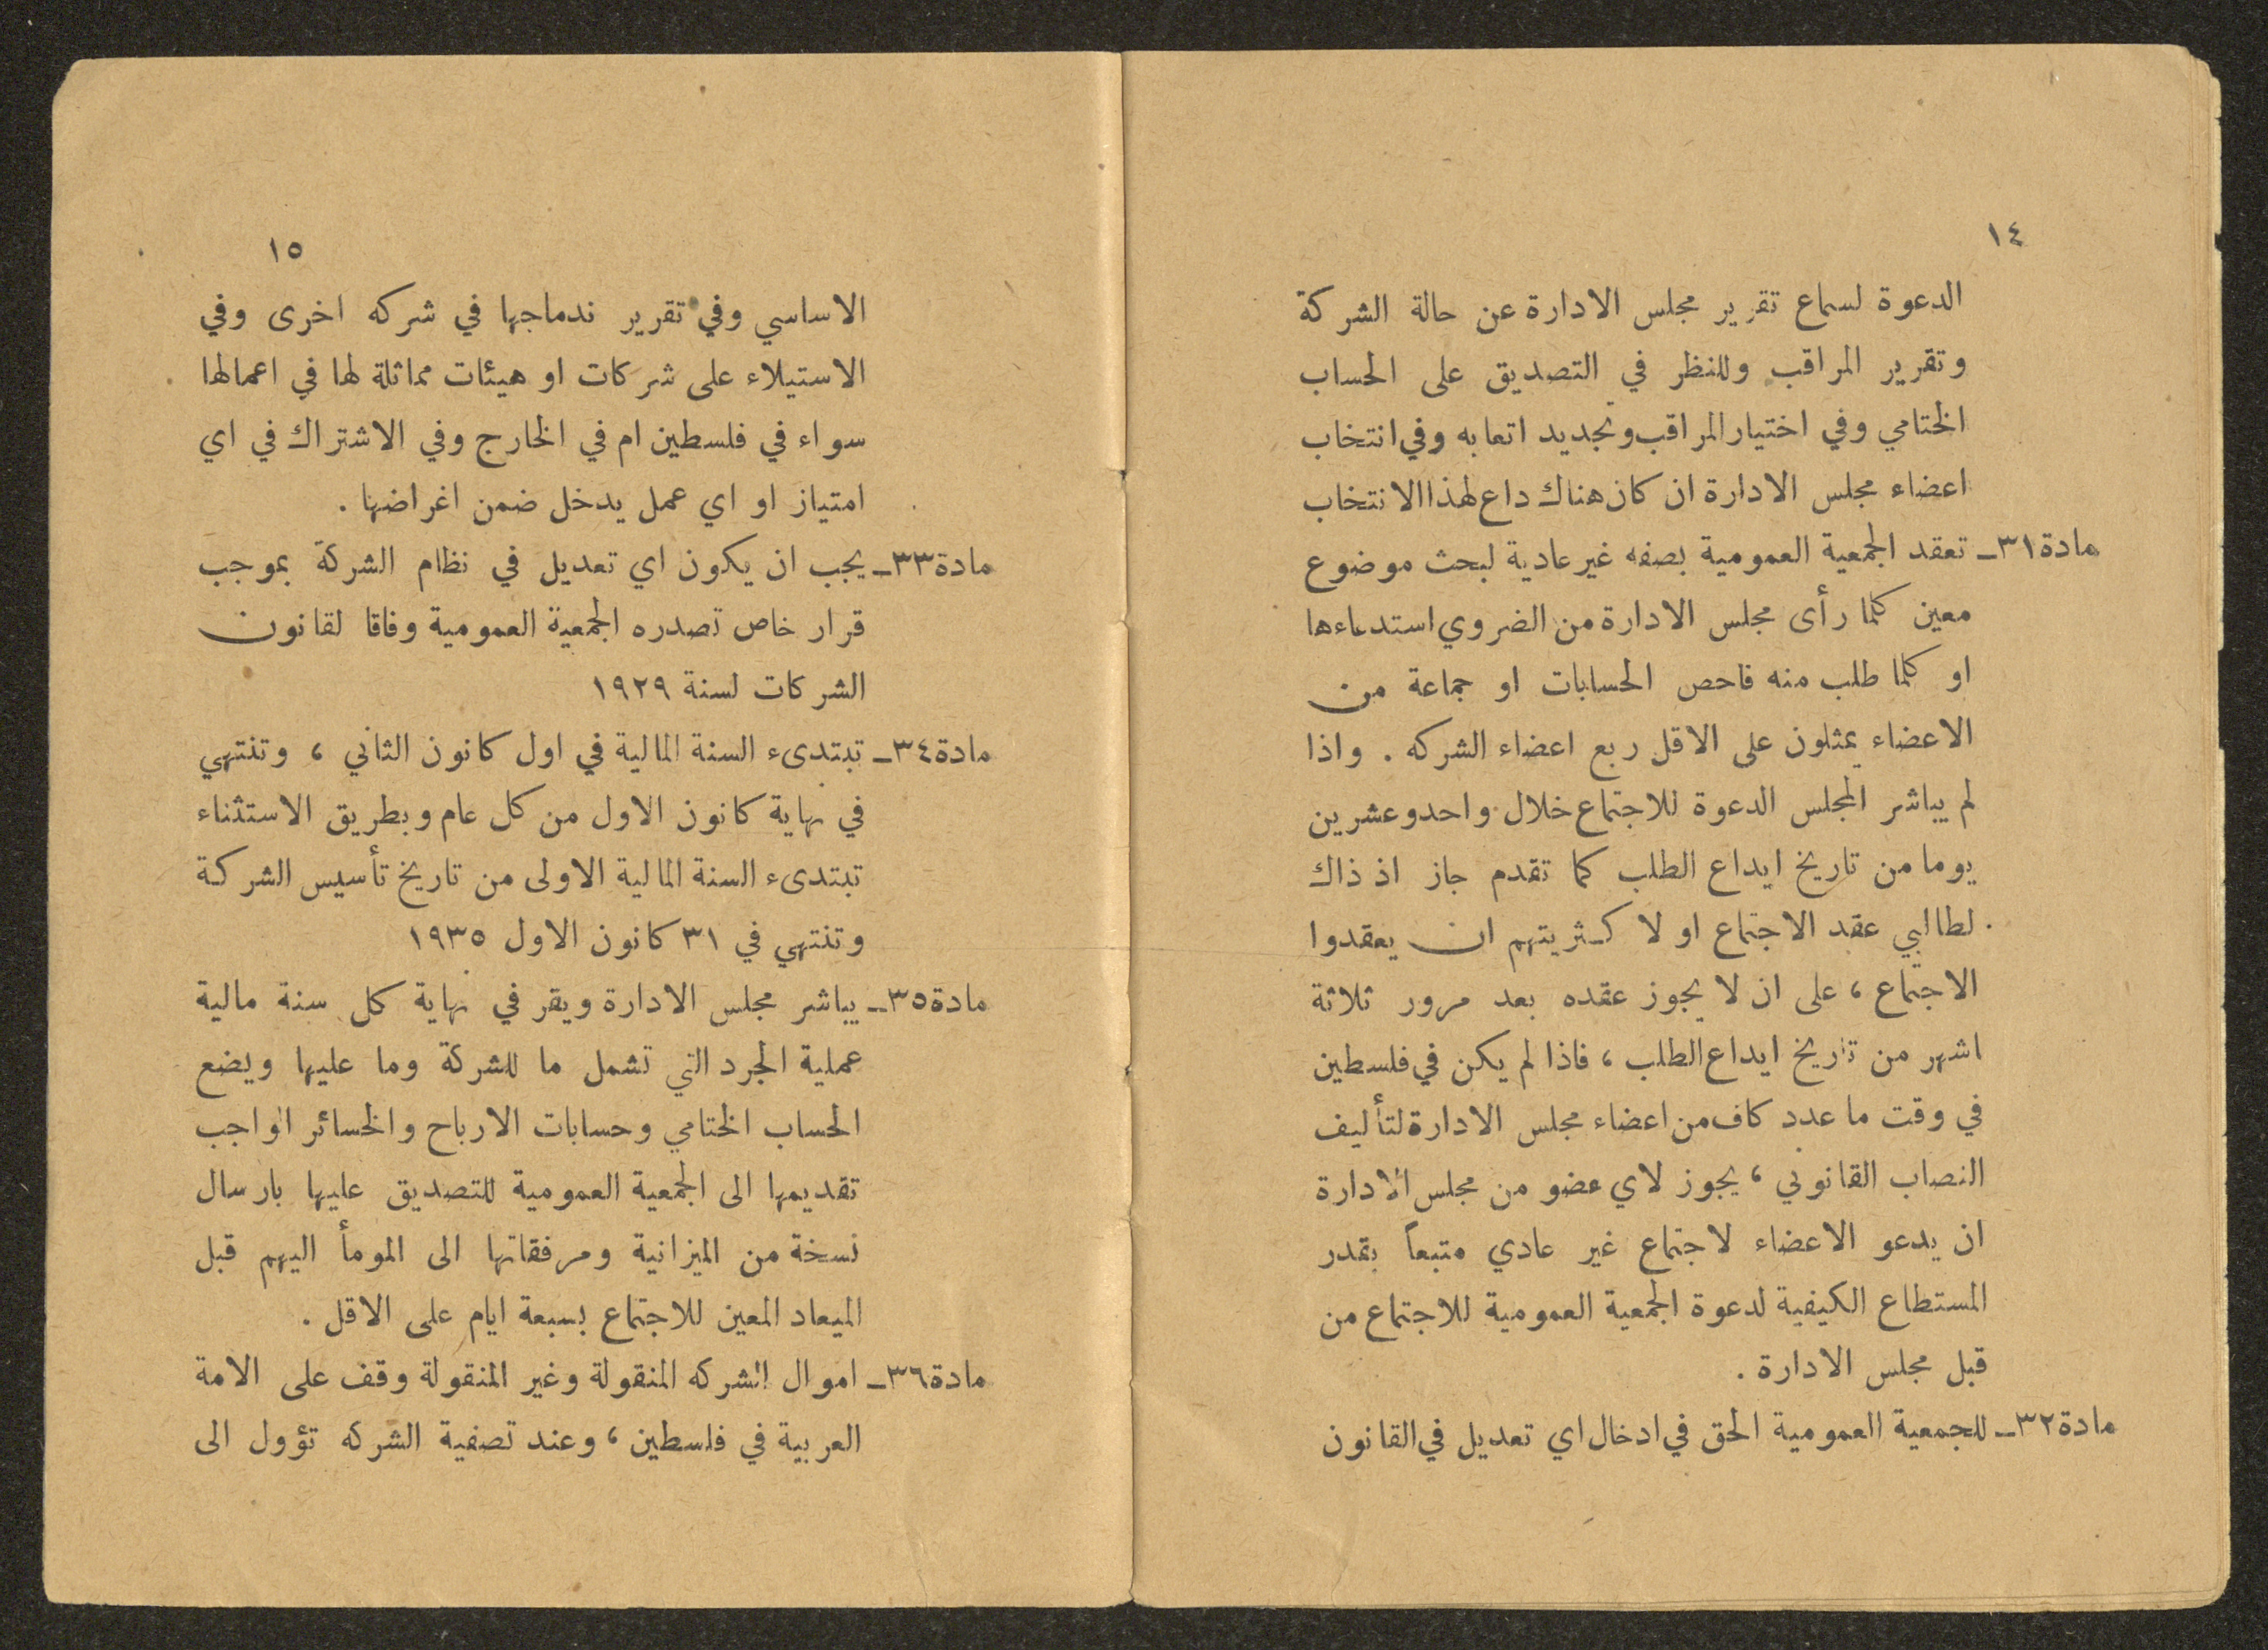 ١٤
الدعوة لسماع تقرير مجلس الادارة عن حالة الشركة
وتقرير المراقب وللنظر في التصديق على الحساب
الختامي وفي اختيار المراقب وتجديد اتعابه وفي انتخاب
اعضاء مجلس الادارة ان كان هناك داع لهذا الانتخاب
مادة ٣١ـ تعقد الجمعية العمومية بصفه غير عادية لبحث موضوع
معين كلما رأى مجلس الادارة من الضروي استدعاءها
او كلما طلب منه فاحص الحسابات او جماعة من
الاعضاء يمثلون على الاقل ربع اعضاء الشركه . واذا
لم يباشر المجلس الدعوة للاجتماع خلال واحد وعشرين
يوما من تاريخ ايداع الطلب كما تقدم جاز اذ ذاك
لطالبي عقد الاجتماع او لا كثريتهم ان يعقدوا
الاجتماع ، على ان لا يجوز عقده بعد مرور ثلاثة
اشهر من تاريخ ايداع الطلب ، فاذا لم يكن في فلسطين
في وقت ما عدد كاف من اعضاء مجلس الادارة لتأليف
النصاب القانوني ، يجوز لاي عضو من مجلس الادارة
ان يدعو الاعضاء لاجتماع غير عادي متبعاً بقدر
المستطاع الكيفية لدعوة الجمعية العمومية للاجتماع من
قبل مجلس الادارة .
مادة ٣٢ـ للجمعية العمومية الحق في ادخال اي تعديل في القانون
١٥
الاساسي وفي تقرير ندماجها في شركه اخرى وفي
الاستيلاء على شركات او هيئات مماثلة لها في اعمالها
سواء في فلسطين ام في الخارج وفي الاشتراك في اي
امتياز او اي عمل يدخل ضمن اغراضها .
مادة ٣٣ـ يجب ان يكون اي تعديل في نظام الشركة بموجب
قرار خاص تصدره الجمعية العمومية وفاقا لقانون
الشركات لسنة ١٩٢٩
مادة ٣٤ـ تبتدىء السنة المالية في اول كانون الثاني ، وتنتهي
في نهاية كانون الاول من كل عام وبطريق الاستثناء
تبتدىء السنة المالية الاولى من تاريخ تأسيس الشركة
وتنتهي في ٣١ كانون الاول ١٩٣٥
مادة ٣٥ـ يباشر مجلس الادارة ويقر في نهاية كل سنة مالية
عملية الجرد التي تشمل ما للشركة وما عليها ويضع
الحساب الختامي وحسابات الارباح والخسائر الواجب
تقديمها الى الجمعية العمومية للتصديق عليها بارسال
نسخة من الميزانية ومرفقاتها الى المومأ اليهم قبل
الميعاد المعين للاجتماع بسبعة ايام على الاقل .
مادة ٣٦ـ اموال الشركه المنقولة وغير المنقولة وقف على الامة
العربية في فلسطين ، وعند تصفية الشركه تؤول الى